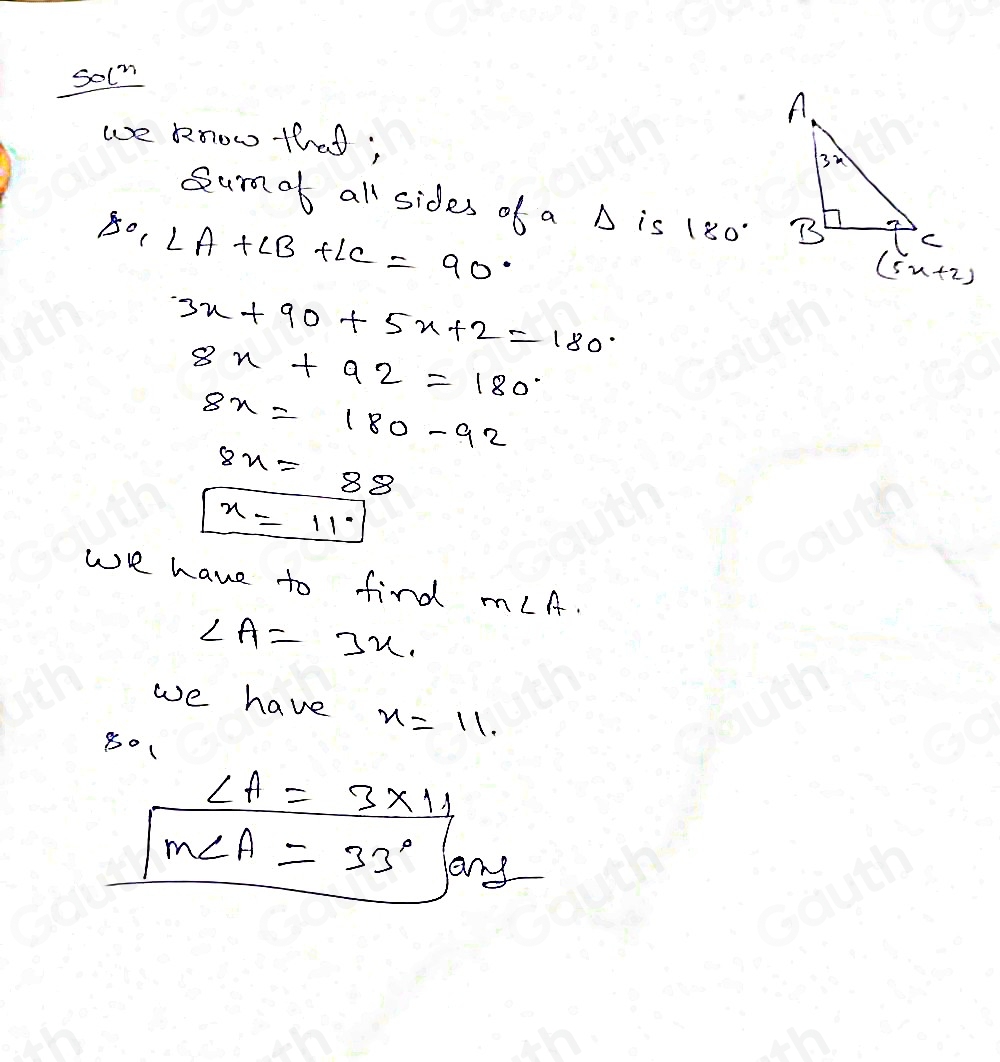 Solⁿ
we know that;
Sum of all sides of a Δ is 180°
So, ∠A + ∠B + ∠C = 90°
3x + 90 + 5x + 2 = 180°
8x + 92 = 180°
8x = 180 - 92
8x = 88
x = 11°
we have to find m∠A.
∠A = 3x.
we have x = 11.
So,
∠A = 3 × 11
m∠A = 33° ans
A
3x
B
C
(5x+2)
Gauth